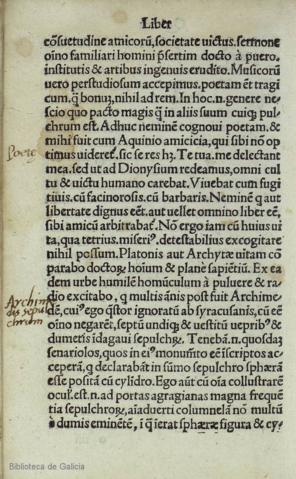 Liber
cõsuetudine amicorũ, societate victus. sermone
oĩno familiari homini ꝑsertim docto à puero.
institutis & artibus ingenuis erudito. Musicorũ
uero perstudiosum accepimus. poetam ẽt tragi
cum. q̃ bonuȝ, nihil ad rem. In hoc .n. genere ne-
scio quo pacto magis q̃ in aliis suum cuiqꝫ pul-
chrum est. Adhuc neminẽ cognoui poetam. &
mihi fuit cum Aquinio amicicia, qui sibi nõ op
timus videret̃. sic se res hȝ. Te tua. me delectant
mea. sed ut ad Dionysium redeamus, omni cul
tu & victu humano carebat. Viuebat cum fugi
tiuis. cũ facinorosis. cũ barbaris. Neminẽ q̃ aut
libertate dignus eẽt. aut uellet omnino liber eẽ,
sibi amicũ arbitrabat̃. Nõ ergo iam cũ huius ui
ta, qua tetrius. miseriꝰ. detestabilius excogitare
nihil possum. Platonis aut Archytæ uitam cõ
parabo doctoꝝ hoĩum & planè sapiẽtiũ. Ex ea
dem urbe humilẽ homũculum à puluere & ra-
dio excitabo, q multis ãnis post fuit Archime-
dẽ, cuiꝰ ego q̃stor ignoratũ ab syracusanis, cũ eẽ
oĩno negarẽt, septũ undiqꝫ & uestitũ ueprib⁹ &
dumetis ĩdagaui sepulchꝝ. Tenebã .n. quosdaȝ
senariolos, quos in eiꝰ monumẽto eẽ ĩscriptos ac
ceperã, q declarabãt in sũmo sepulchro sphærã
esse positã cũ cylĩdro. Ego aũt cũ oĩa collustrarẽ
ocul. est .n. ad portas agragianas magna frequẽ
tia sepulchroꝝ, aĩaduerti columnelã nõ multũ
è dumis eminẽtẽ, ĩ q̃ ĩerat sphæræ figura & cy-
Archime
dis sepul
chrum
Biblioteca de Galicia